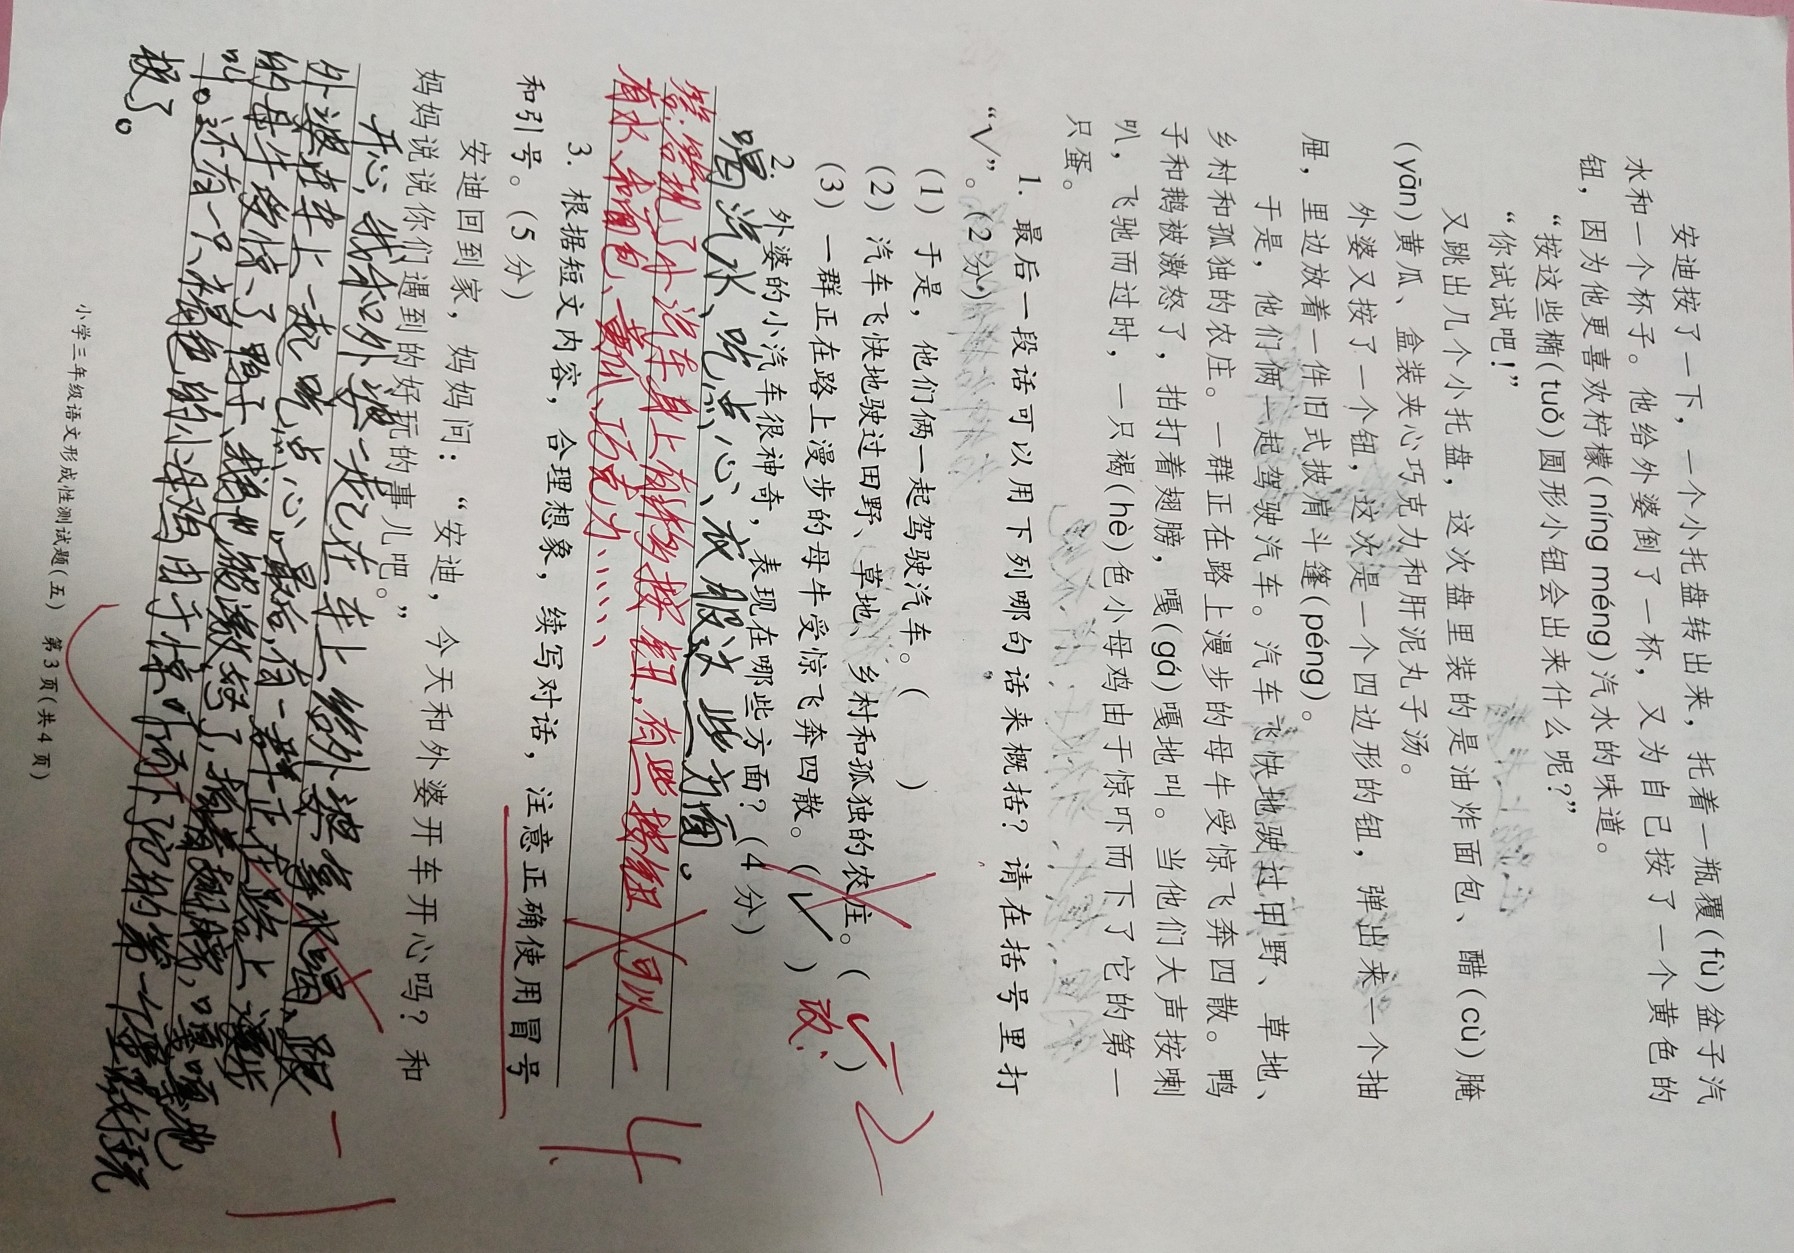 安迪按了一下，一个小托盘转出来，托着一瓶覆(fù)盆子汽
水和一个杯子。他给外婆倒了一杯，又为自己按了一个黄色的
钮，因为他更喜欢柠檬(níng méng)汽水的味道。
“按这些椭(tuǒ)圆形小钮会出来什么呢?”
“你试试吧！”
又跳出几个小托盘，这次盘里装的是油炸面包、醋(cù)腌
(yān)黄瓜、盒装夹心巧克力和肝泥丸子汤。
外婆又按了一个钮，这次是一个四边形的钮，弹出来一个抽
屉，里边放着一件旧式披肩斗篷(péng)。
于是，他们俩一起驾驶汽车。汽车飞快地驶过田野、草地、
乡村和孤独的农庄。一群正在路上漫步的母牛受惊飞奔四散。鸭
子和鹅被激怒了，拍打着翅膀，嘎(gá)嘎地叫。当他们大声按喇
叭，飞驰而过时，一只褐(hè)色小母鸡由于惊吓而下了它的第一
只蛋。
1. 最后一段话可以用下列哪句话来概括？请在括号里打
“√”。(2分)
(1) 于是，他们俩一起驾驶汽车。( )
(2) 汽车飞快地驶过田野、草地、乡村和孤独的农庄。( √ )
(3) 一群正在路上漫步的母牛受惊飞奔四散。( √ ) 改:
2
2. 外婆的小汽车很神奇，表现在哪些方面？(4分)
喝汽水、吃点心、衣服这些方面。
答:表现了小汽车身上有许多按钮,有些按钮 可以一
有水、和面包、黄瓜、巧克力……
4
3. 根据短文内容，合理想象，续写对话，注意正确使用冒号
和引号。(5分)
安迪回到家，妈妈问：“安迪，今天和外婆开车开心吗？和
妈妈说说你们遇到的好玩的事儿吧。”
开心，我和外婆一起在车上给外婆拿水喝、跟
外婆在车上一起吃点心,最后,有一群正在路上漫步
的母牛受惊了,鸭子、鹅也能激怒了,拍着翅膀,嘎嘎地
叫。还有一只褐色的小母鸡由于惊吓而下它的第一个蛋
极了。
小学三年级语文形成性测试题(五) 第3页(共4页)